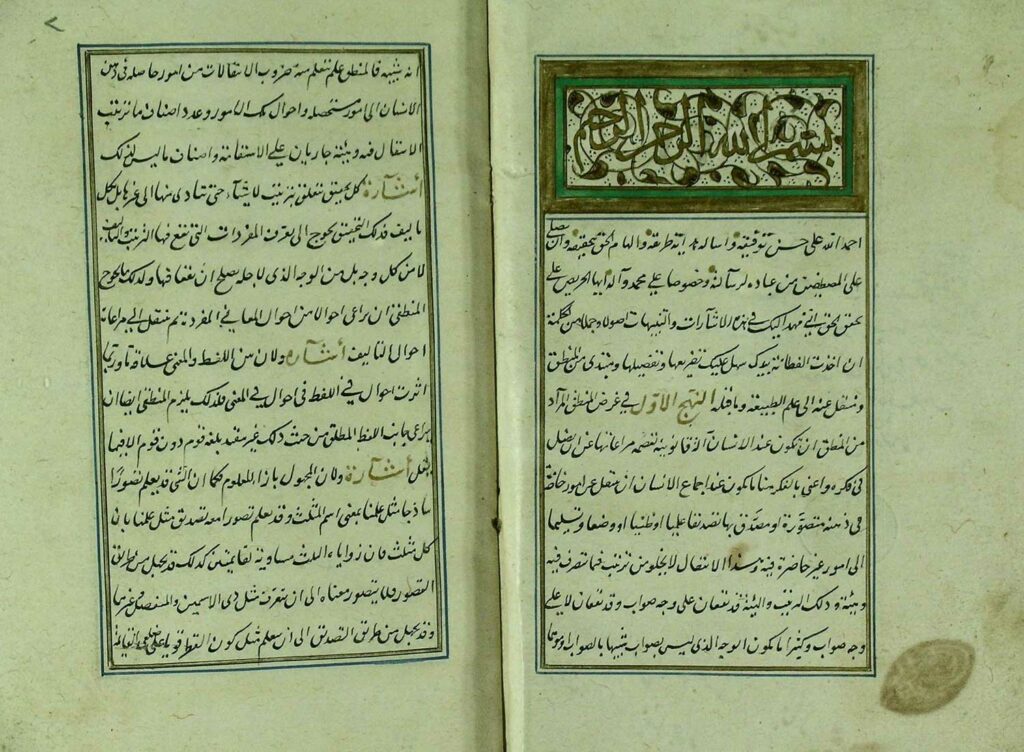 بسم الله الرحمن الرحيم
احمد الله على حسن توفيقه واساله هداية طريقه والهام الحق بتحقيقه وان يصلى
على المصطفين من عباده لرسالته وخصوصا على محمد وآله ايها الحريص على
تحقق الحق انى مهد اليك فى هذه الاشارات والتنبيهات اصولا وجملا من الحكمة
ان اخذت الفطانة بيدك سهل عليك تفريعها وتفصيلها ومبتدى من المنطق
ومنتقل عنه الى علم الطبيعة وما قبله النهج الاول فى غرض المنطق المراد
من المنطق ان تكون عند الانسان آلة قانونية تعصمه مراعاتها عن ان يضل
فى فكره واعنى بالفكر هنا ما يكون عند اجماع الانسان ان ينتقل عن امور حاضرة
فى ذهنه متصورة او مصدق بها تصديقا علميا او ظنيا او وضعا وتسليما
الى امور غير حاضرة فيه وهذا الانتقال لا يخلو من ترتيب فيما يتصرف فيه
وهيئة وذلك الترتيب والهيئة قد يقعان على وجه صواب وقد يقعان لا على
وجه صواب وكثيرا ما يكون الوجه الذى ليس بصواب شبيها بالصواب او موهما
انه شبيه فالمنطق علم يتعلم منه ضروب الانتقالات من امور حاصلة فى ذهن
الانسان الى امور مستحصلة واحوال تلك الامور وعدد اصناف ما ترتيب
الانتقال فيه وهيئته جاريان على الاستقامة واصناف ما ليس كذلك
اشارة كل تحقيق يتعلق بترتيب الاشياء حتى يتادى منها الى غيرها بل بكل
تاليف فذلك التحقيق يحوج الى تعرف المفردات التى تقع فيها الترتيب والتاليف
لا من كل وجه بل من الوجه الذى لاجله يصلح ان يقعا فيها ولذلك يحوج
المنطقى ان يراعى احوالا من احوال المعانى المفردة ثم ينتقل الى مراعاة
احوال التاليف اشارة ولان بين اللفظ والمعنى علاقة ما وربما
اثرت احوال فى اللفظ فى احوال فى المعنى فلذلك يلزم المنطقى ايضا ان
يراعى جانب اللفظ المطلق من حيث ذلك غير مقيد بلغة قوم دون قوم الا فيما
يقل اشارة ولان المجهول بازاء المعلوم فكما ان الشئ قد يعلم تصورا
ساذجا مثل علمنا بمعنى اسم المثلث وقد يعلم تصورا معه تصديق مثل علمنا بان
كل مثلث فان زواياه الثلث مساوية لقايمتين كذلك قد يجهل من طريق
التصور فلا يتصور معناه الى ان يتعرف مثل ذى الاسمين والمنفصل وغيرهما
وقد يجهل من طريق التصديق الى ان يتعلم مثل كون القطر قويا على ضلعى القايمة